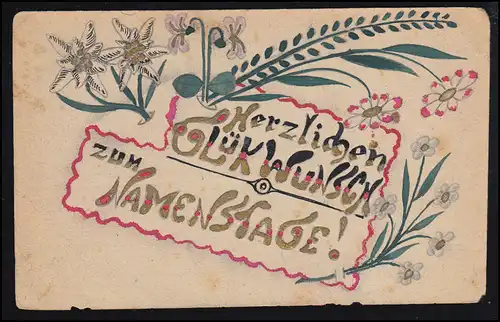 Herzlichen
GLÜKWUNSCH
ZUM
NAMENSTAGE!